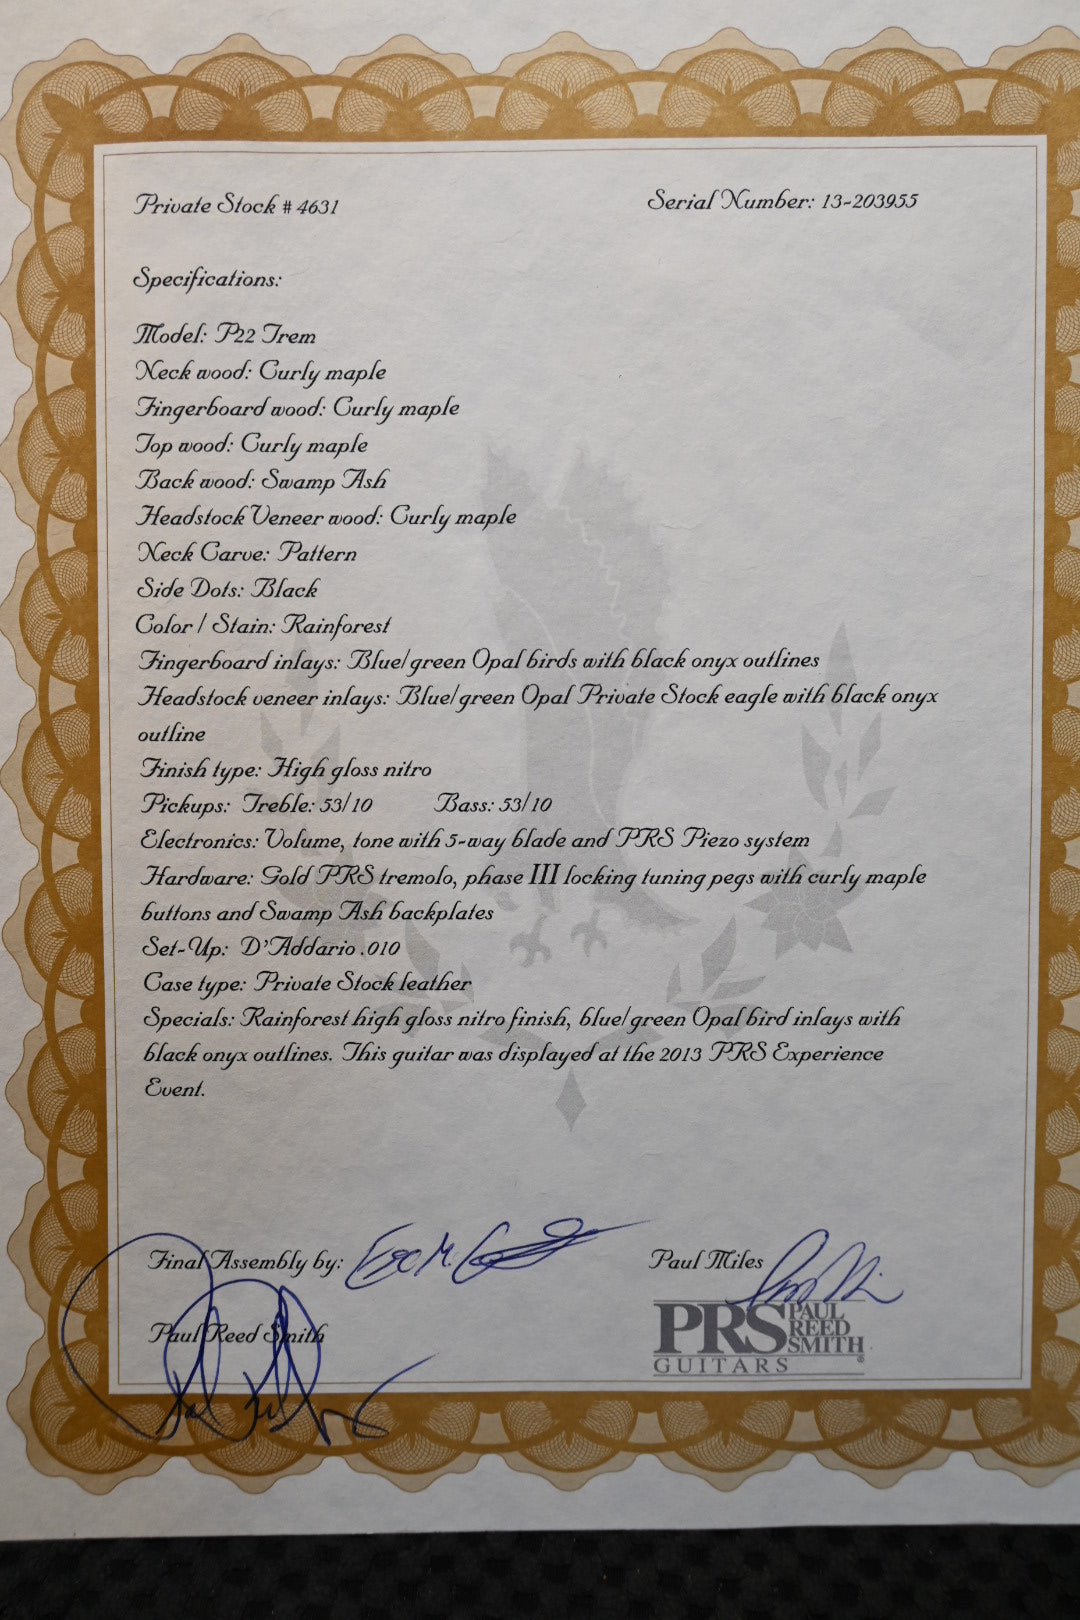 Private Stock # 4631
Serial Number: 13-203955
Specifications:
Model: P22 Trem
Neck wood: Curly maple
Fingerboard wood: Curly maple
Top wood: Curly maple
Back wood: Swamp Ash
Headstock Veneer wood: Curly maple
Neck Carve: Pattern
Side Dots: Black
Color / Stain: Rainforest
Fingerboard inlays: Blue/green Opal birds with black onyx outlines
Headstock veneer inlays: Blue/green Opal Private Stock eagle with black onyx
outline
Finish type: High gloss nitro
Pickups: Treble: 53/10 Bass: 53/10
Electronics: Volume, tone with 5-way blade and PRS Piezo system
Hardware: Gold PRS tremolo, phase III locking tuning pegs with curly maple
buttons and Swamp Ash backplates
Set-Up: D'Addario .010
Case type: Private Stock leather
Specials: Rainforest high gloss nitro finish, blue/green Opal bird inlays with
black onyx outlines. This guitar was displayed at the 2013 PRS Experience
Event.
Final Assembly by:
Paul Miles
Paul Reed Smith
PRS PAUL
REED
SMITH
GUITARS